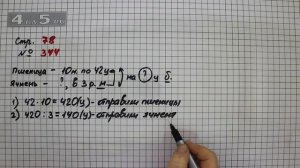 4 из 5 RU
Стр. 78
№ 344
Пшеница – 10м. по 42 ц
Ячмень – ?, в 3 р. м. на ? ц б.
1) 42 · 10 = 420 (ц) – отправили пшеницы
2) 420 : 3 = 140 (ц) – отправили ячменя